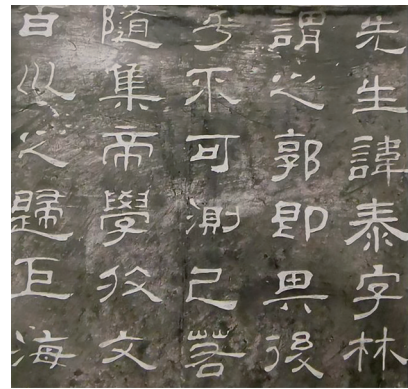 先生諱泰字林
謂之郭即其後
乎不可測已若
隨集帝學收文
百川之歸巨海